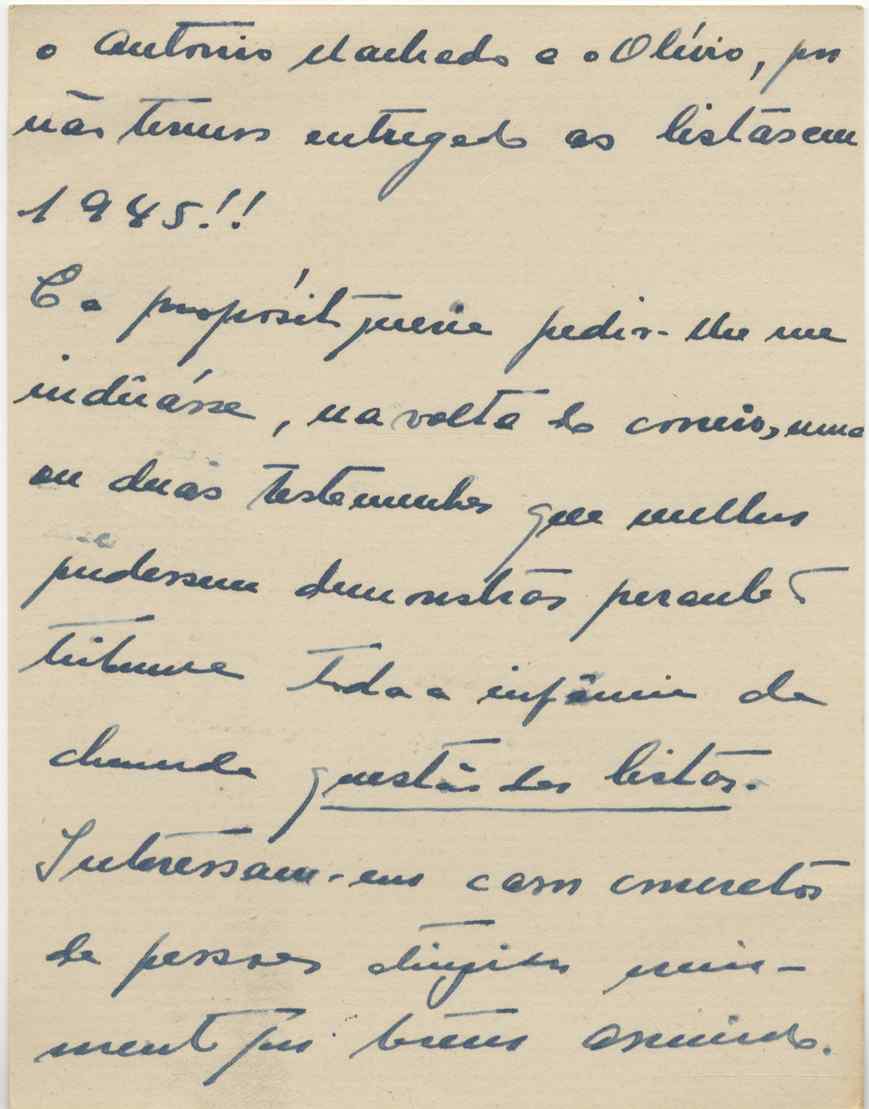 o António Machado e o Olívio, por
não termos entregado as listas em
1945!!
E a propósito queria pedir-lhe me
indicásse, na volta do correio, uma
ou duas testemunhas que melhor
pudessem demonstrar perante o
tribunal toda a infâmia da
chamada questão das listas.
Interessam-me casos concretos
de pessoas atingidas
mente por terem assinado.